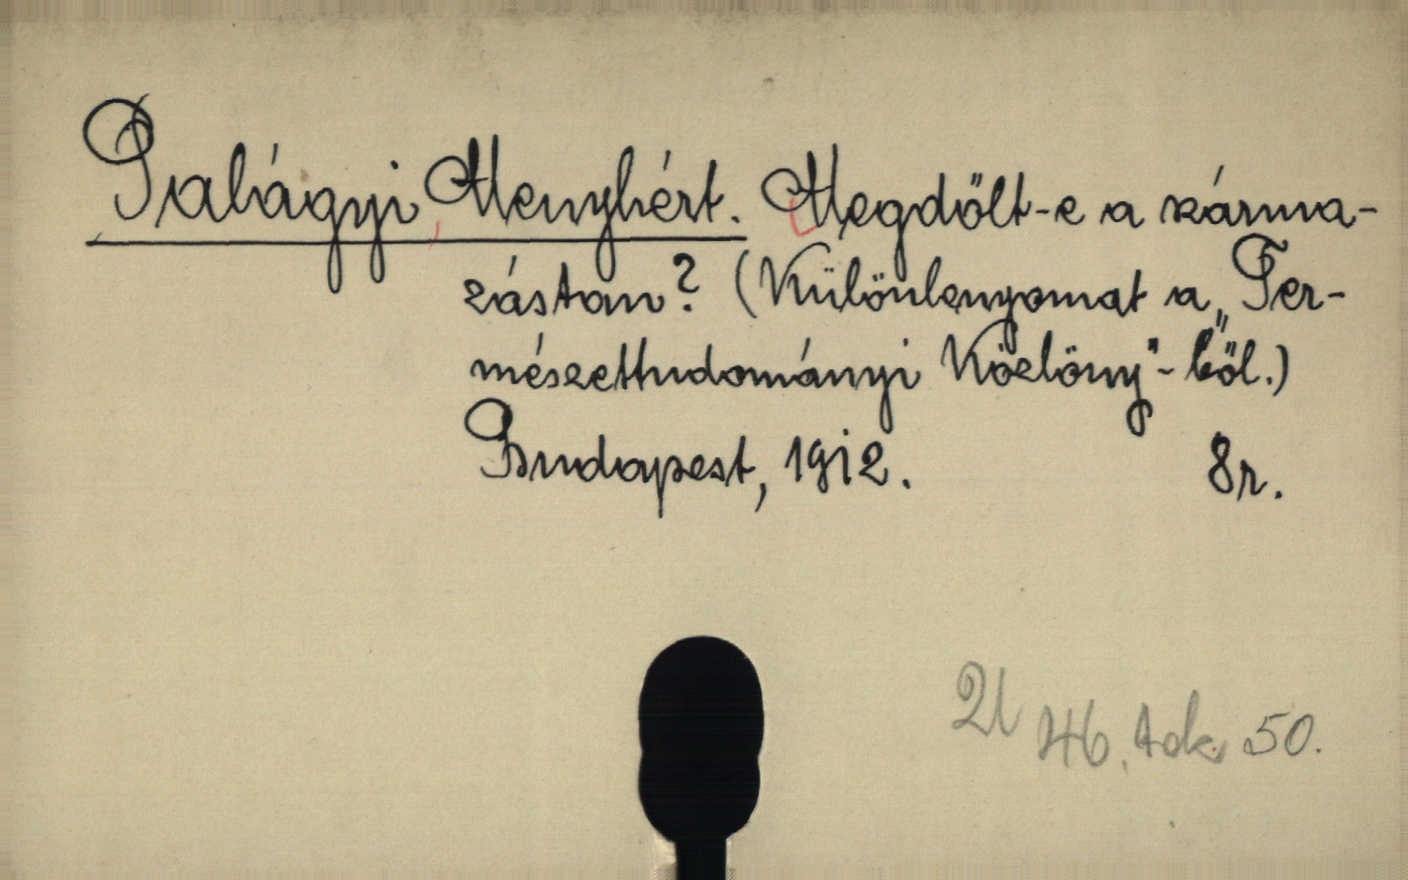 Palágyi Menyhért. Megdőlt-e a szárma-
zástan? (Különlenyomat a „Ter-
mészettudományi Közlöny"-ből.)
Budapest, 1912. 8r.
46. tok 50.